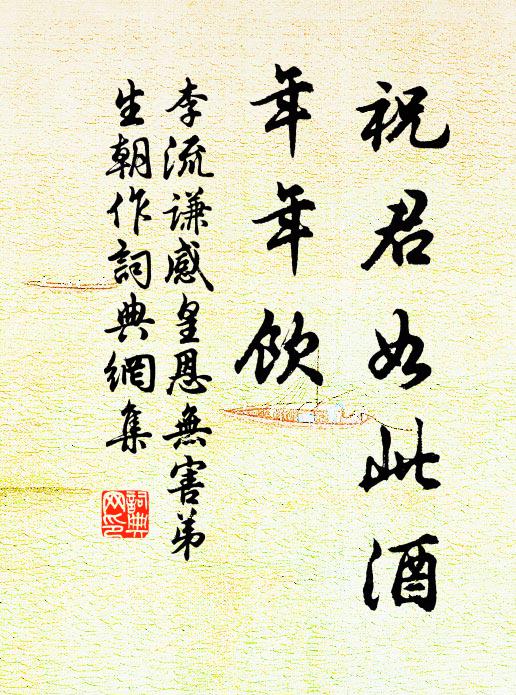 祝君如此酒
年年飲
李流謙感皇恩無害弟
生朝作詞典網集
詞典
网印